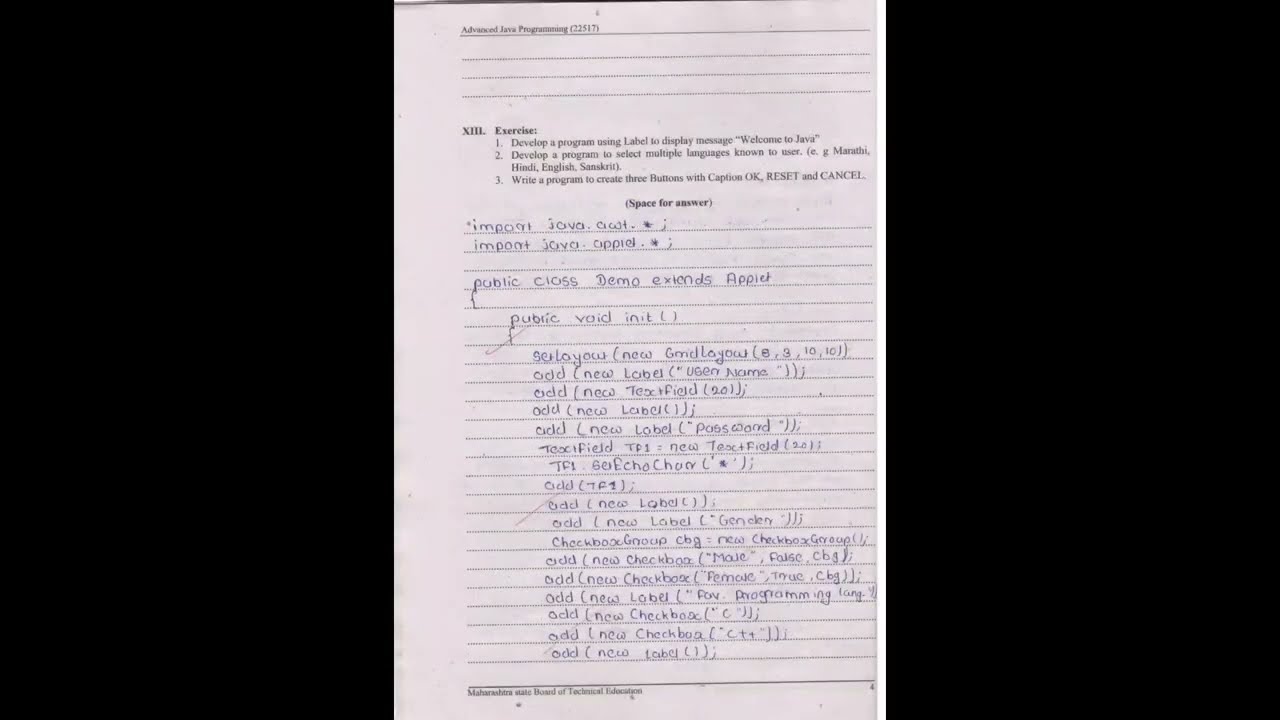 Advanced Java Programming (22517)
XIII. Exercise:
1. Develop a program using Label to display message “Welcome to Java”
2. Develop a program to select multiple languages known to user. (e. g Marathi,
Hindi, English, Sanskrit).
3. Write a program to create three Buttons with Caption OK, RESET and CANCEL.
(Space for answer)
import java.awt.*;
import java.applet.*;
public class Demo extends Applet
{
public void init()
{
setLayout(new GridLayout(8,3,10,10))
add(new Label("User Name"));
add(new TextField(20));
add(new Label());
add(new Label("Password"));
TextField TF1 = new TextField(20);
TF1.setEchoChar('*');
add(TF1);
add(new Label());
add(new Label("Gender"));
CheckboxGroup cbg = new CheckboxGroup();
add(new Checkbox("Male", False, cbg);
add(new Checkbox("Female", True, cbg));
add(new Label("Fav. programming lang.")
add(new Checkbox("C"));
add(new Checkbox("C++"));
add(new Label());
Maharashtra state Board of Technical Education
4